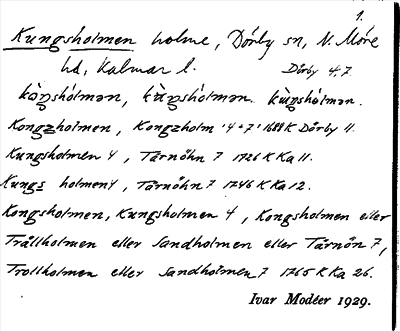 1.
Kungsholmen holme, Dörby sn, N. Möre
hd, Kalmar l. Dörby 4, 7
kòŋshólmən, kùŋshólmən kùŋshólmən.
Kongzholmen, Kongzholm '4+7' 1688 K Dörby 11.
Kungsholmen 4, Tärnöhn 7 1726 K Ka 11.
Kungs holmen 4, Tärnöhn 7 1746 K Ka 12.
Kongsholmen, Kungsholmen 4, Kongsholmen eller
Trållholmen eller Sandholmen eller Tärnön 7,
Trollholmen eller Sandholmen 7 1765 K Ka 26.
Ivar Modéer 1929.